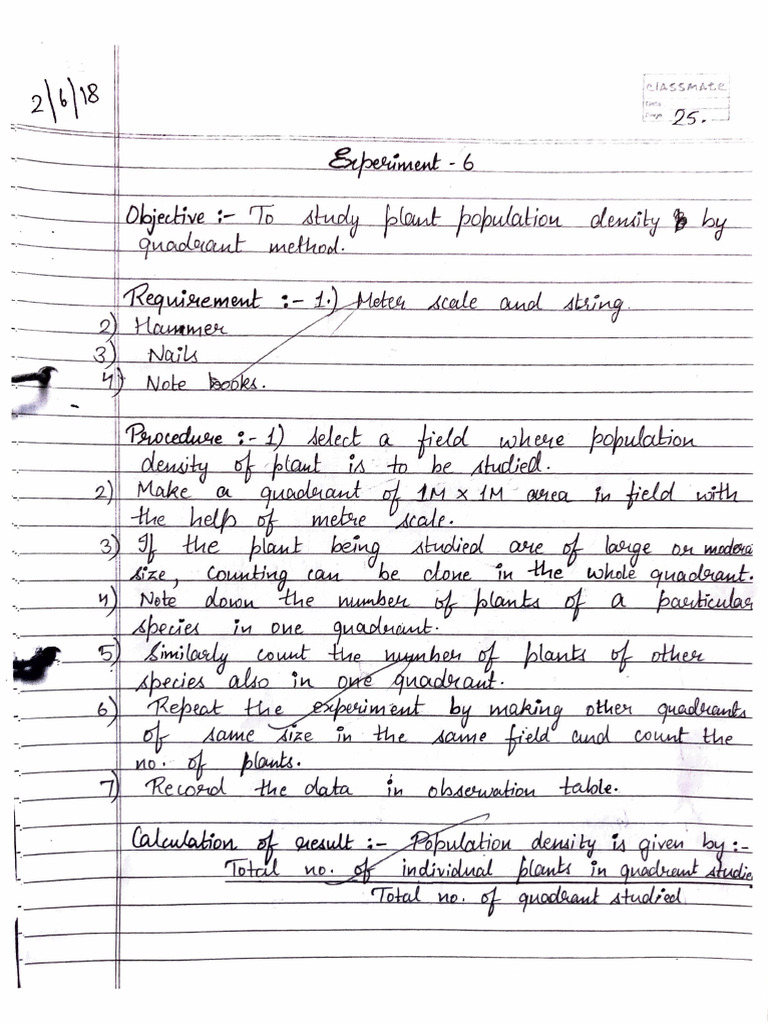 2/6/18
classmate
Date
Page 25.
Experiment - 6
Objective :- To study plant population density by
quadrant method.
Requirement :- 1.) Meter scale and string.
2) Hammer
3) Nails
4) Note books.
Procedure :- 1) Select a field where population
density of plant is to be studied.
2) Make a quadrant of 1M x 1M area in field with
the help of metre scale.
3) If the plant being studied are of large or modera
size, counting can be done in the whole quadrant.
4) Note down the number of plants of a particular
species in one quadrant.
5) Similarly count the number of plants of other
species also in one quadrant.
6) Repeat the experiment by making other quadrants
of same size in the same field and count the
no. of plants.
7) Record the data in observation table.
Calculation of result :- Population density is given by :-
Total no. of individual plants in quadrant studie
Total no. of quadrant studied